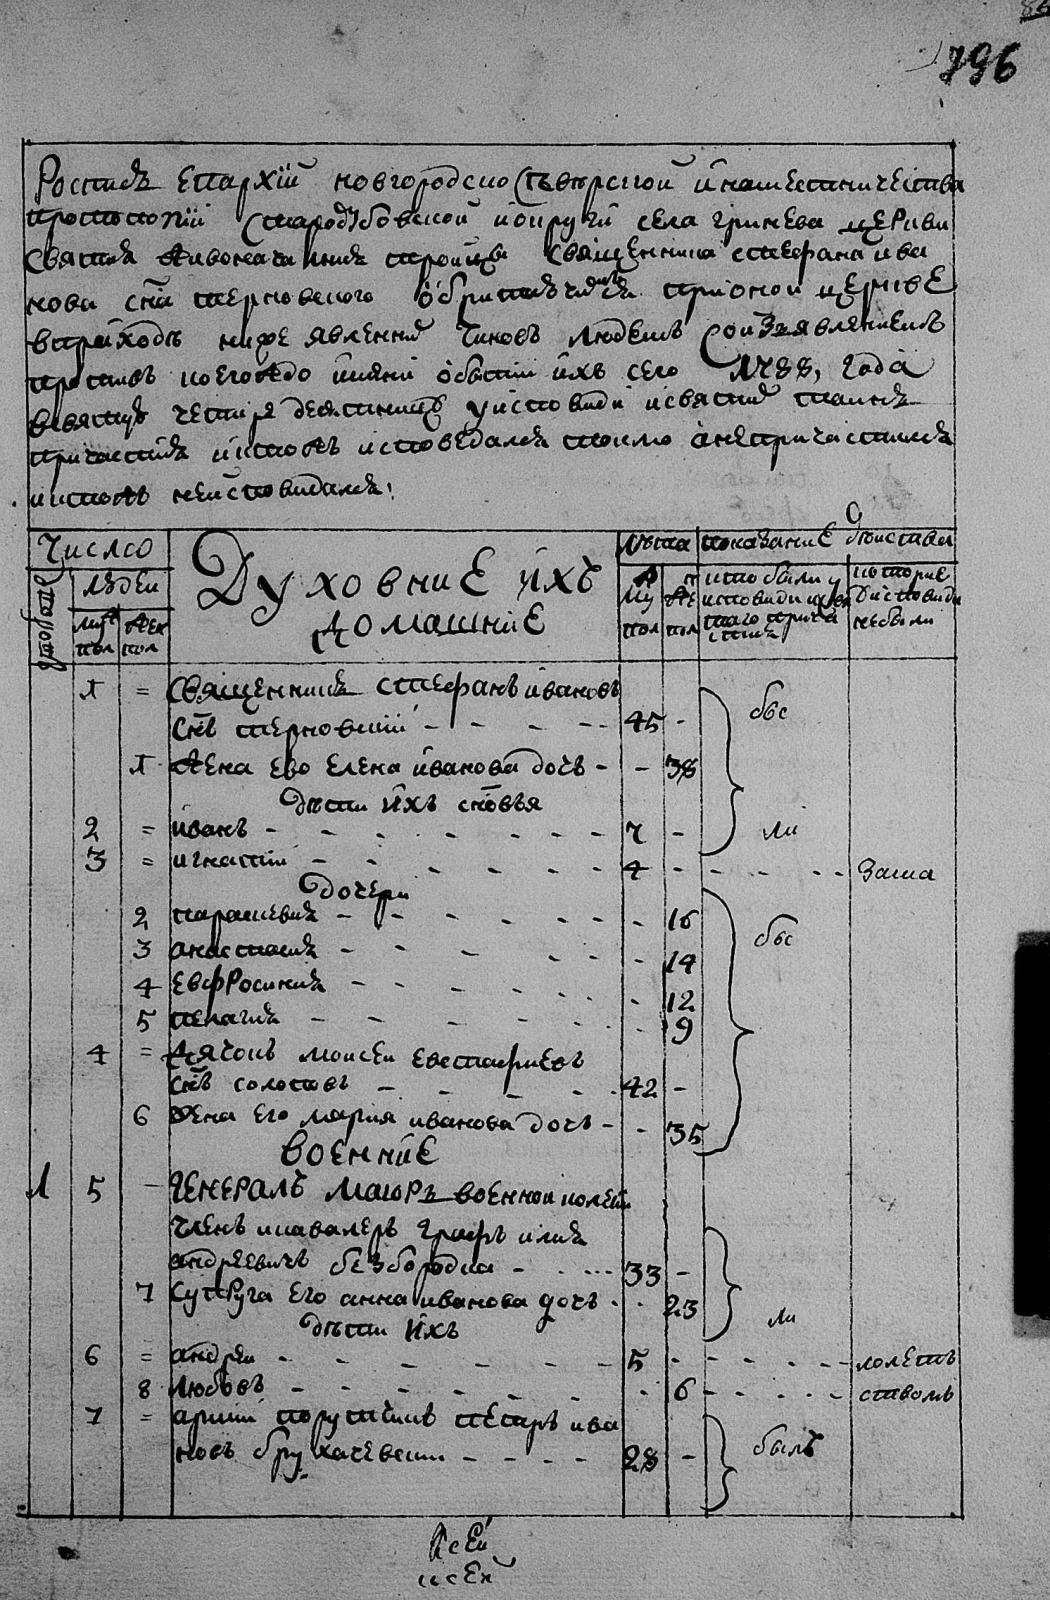 796
Роспись епархїи новгородско Съвѣрской инаместничества
протопопїи Стародубовской иокруги села гринева церкви
Святия живоначалния тройци священника стефана ива
нова сна терновского обрѣтающихся прионой церкве
вприходѣ нижеявленнихъ чиновъ людехъ соизявлениемъ
противъ коегождо имяни обытіи ихъ сего 1788, года
всвятую четиредесятницу уисповѣди исвятихъ таинъ
причастия иктожъ исповедался токмо анепричастился
иктожъ неисповѣдался:
Число
людей
дворовъ
муж
пол
жен
пол
Духовние ихъ
домашние
лѣта
му
пол
же
пол
показание о
кто были у
исповеди исвя
таго прича
стия
которие
уисповѣди
небыли
1 = Священникъ стефанъ ивановъ
снъ терновский - - - - 45 -
1 жена его елена иванова дочъ - - 38
бы
дѣти ихъ сновья
2 = иванъ - - - - - - - 7 -
ли
3 = игнатий - - - - - 4 - - - - - - зама
дочери
2 параскевия - - - - - - 16
3 анастасия - - - - - 14
бы
4 евфросиния - - - - - - 12
5 пелагия - - - - - - 9
4 = дячокъ моисей евстафиевъ
снъ солотовъ - - - - 42 -
6 жена его мария иванова дочъ - - 35
военние
1 5 - генералъ маиоръ военной колегии
членъ икавалеръ графъ илия
андреевичъ безбородка - - - - 33 -
7 супруга его анна иванова дочъ - - 23
ли
дѣти ихъ
6 = андрей - - - - - - - 5 - - - - - - малолет
8 любовъ - - - - - - - 6 - - - - - ством
7 = армии порутчикъ петръ ива
новъ бру хачевски - - - - 28 -
былъ